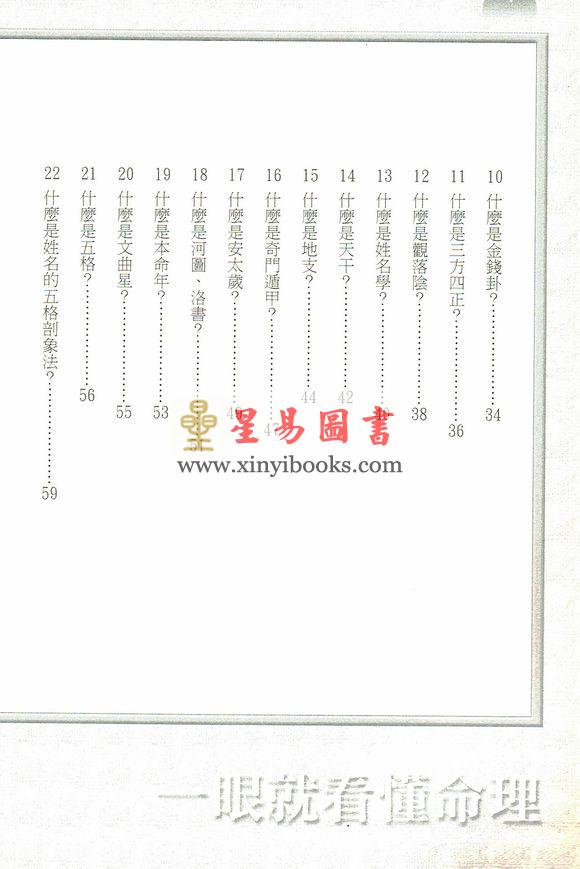 10 什麼是金錢卦？………………34
11 什麼是三方四正？………………36
12 什麼是觀落陰？………………38
13 什麼是姓名學？………………40
14 什麼是天干？………………42
15 什麼是地支？………………44
16 什麼是奇門遁甲？………………47
17 什麼是安太歲？………………49
18 什麼是河圖、洛書？………………51
19 什麼是本命年？………………53
20 什麼是文曲星？………………55
21 什麼是五格？………………56
22 什麼是姓名的五格剖象法？………………59
星易圖書
www.xinyibooks.com
一眼就看懂命理